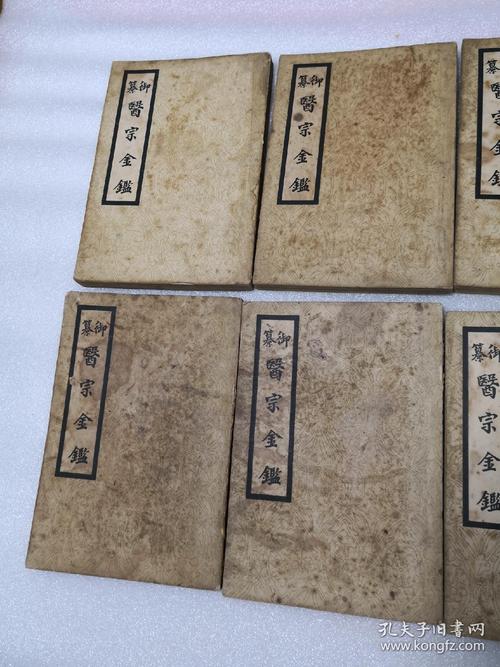 御纂醫宗金鑑
御纂醫宗金鑑
御纂醫宗金鑑
御纂醫宗金鑑
御纂醫宗金鑑
御纂醫宗金鑑
孔夫子旧书网
www.kongfz.com